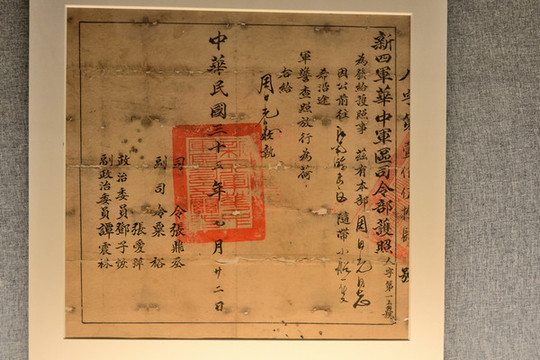 新四軍華中軍區司令部護照
人字第一五號
為發給護照事茲有本部周日元同志
因公前往
隨帶小船一隻
希沿途
軍警查照放行為荷
右給
周日元收執
中華民國三十五年 月廿二日
司令張鼎丞
副司令粟裕
張愛萍
政治委員鄧子恢
副政治委員譚震林